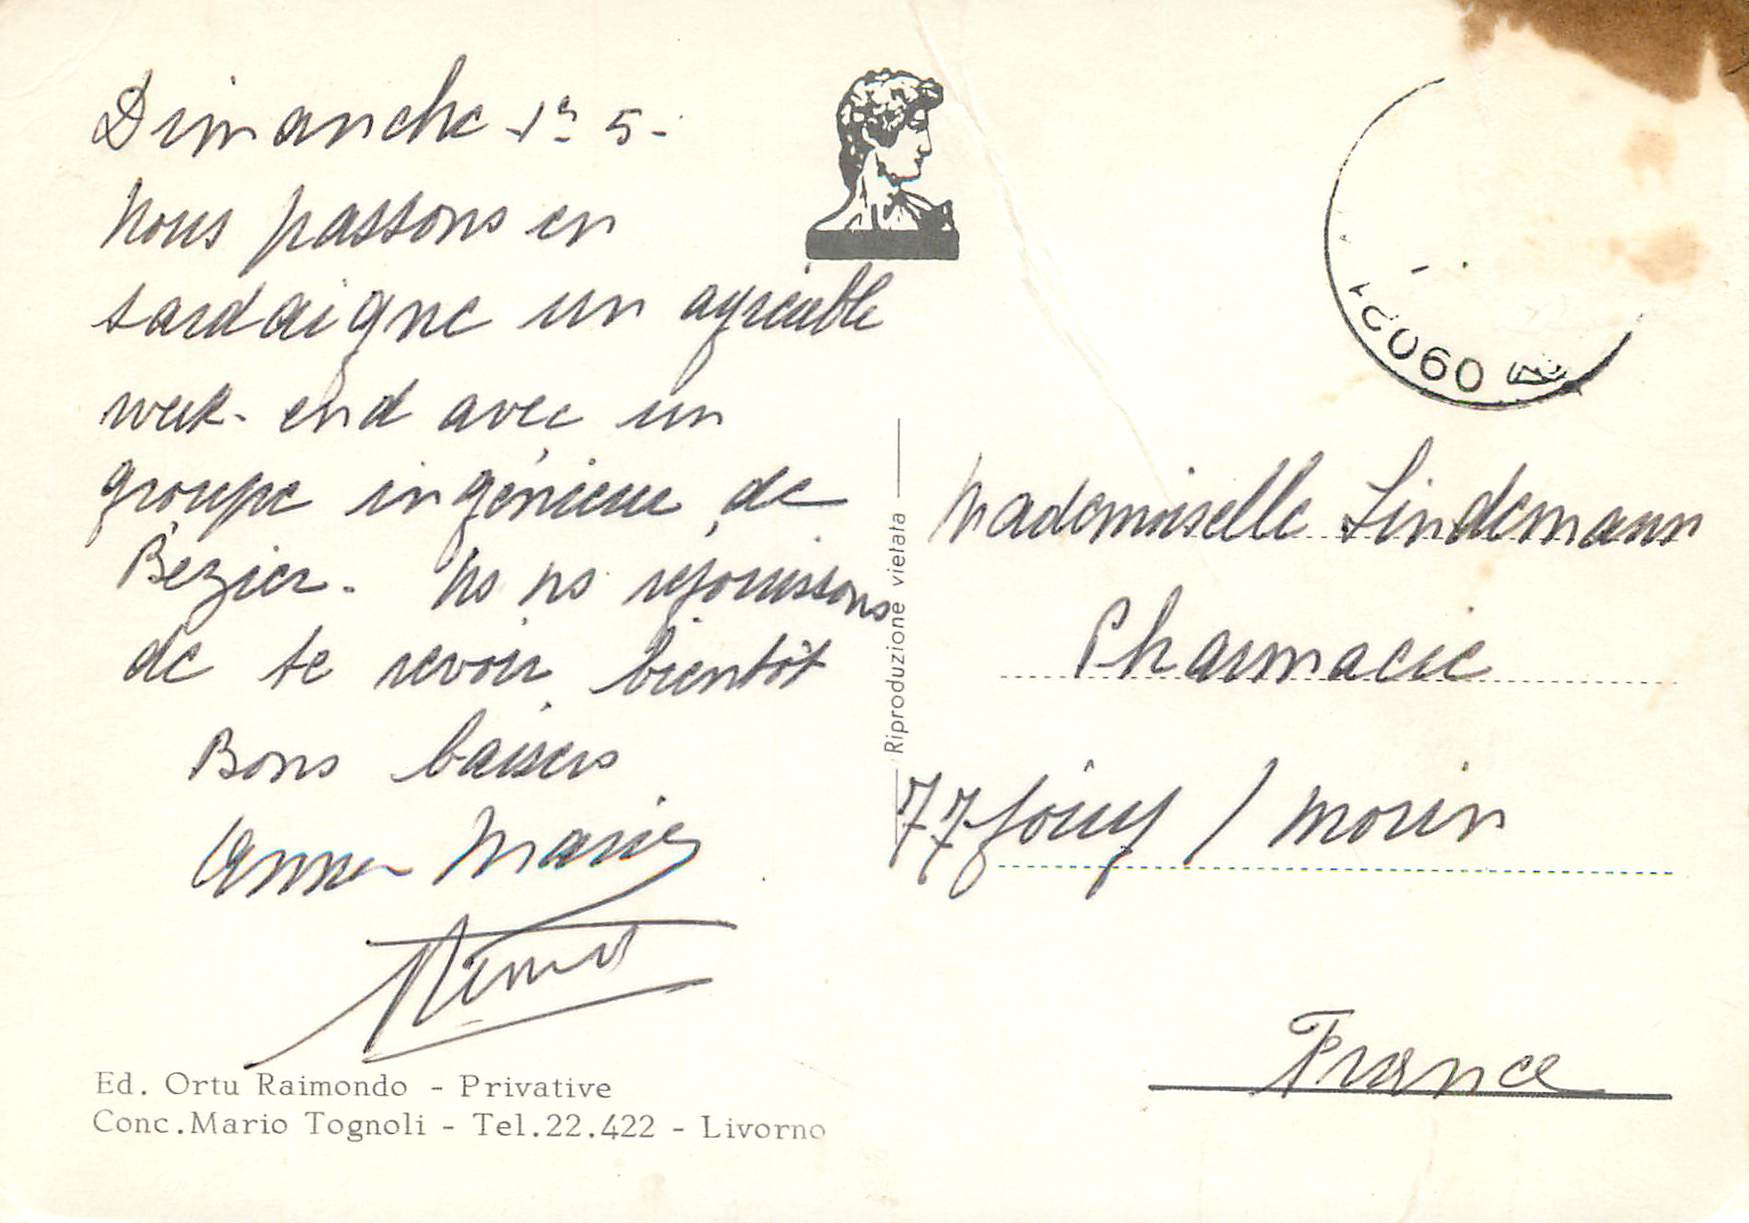 Dimanche 1er 5-
Nous passons en
sardaigne un agréable
week-end avec un
groupe ingénieur de
Bézier. Ns ns réjouissons
de te revoir bientôt
Bons baisers
Anne Marie
Ed. Ortu Raimondo - Privative
Conc. Mario Tognoli - Tel. 22.422 - Livorno
Riproduzione vietata
Mademoiselle Lindemann
Pharmacie
77 Jouy / Morin
France